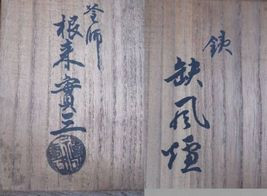 鉄
欠風炉
釜師
根来實三